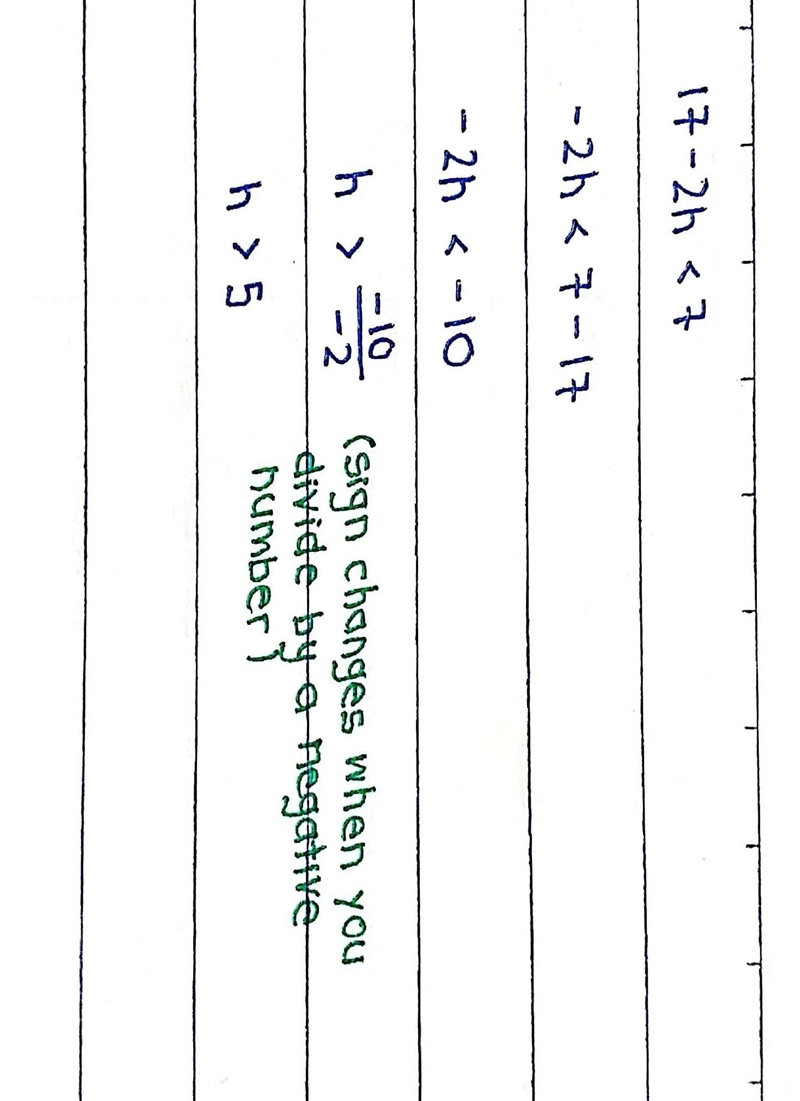 17 - 2h < 7
-2h < 7 - 17
-2h < -10
h > -10/-2 (sign changes when you
divide by a negative
number)
h > 5